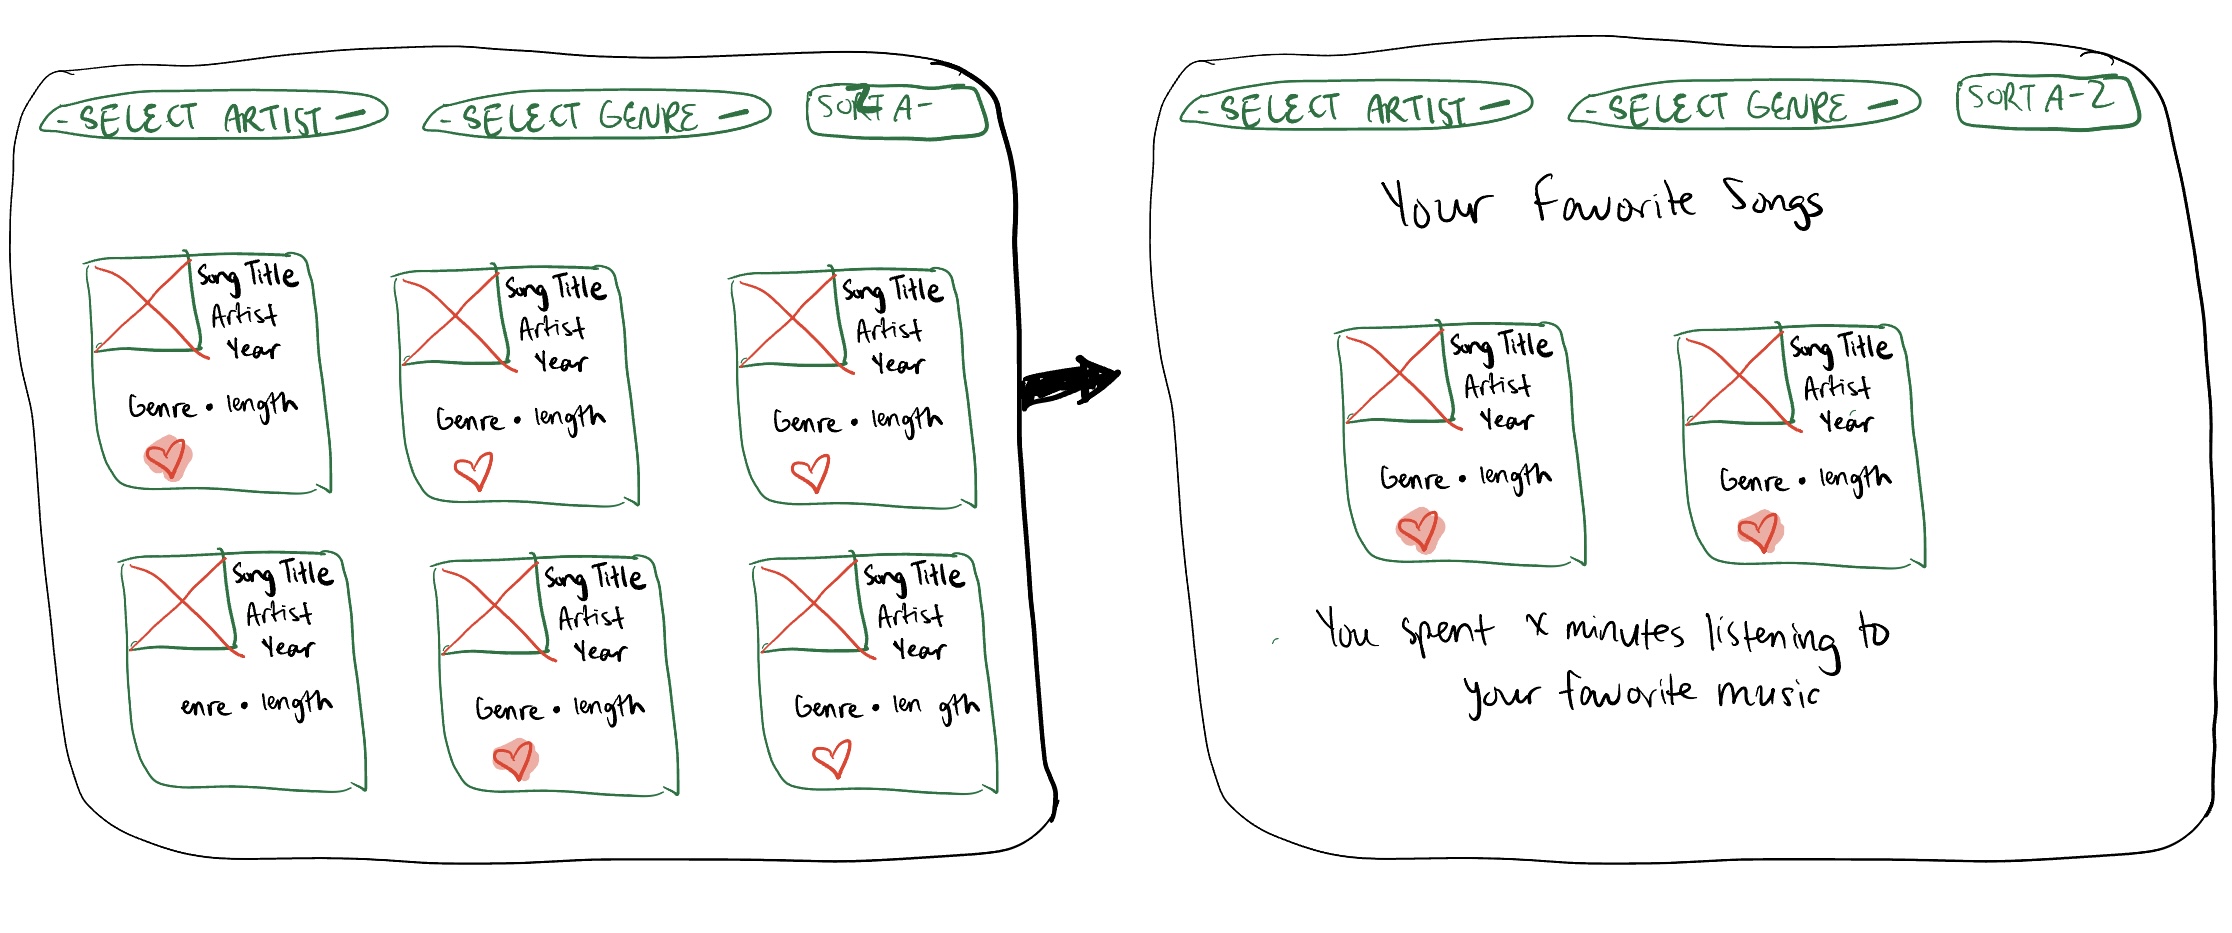 - SELECT ARTIST -
- SELECT GENRE -
SORT A-Z
Song Title
Artist
Year
Genre • length
Song Title
Artist
Year
Genre • length
Song Title
Artist
Year
Genre • length
Song Title
Artist
Year
enre • length
Song Title
Artist
Year
Genre • length
Song Title
Artist
Year
Genre • len gth
- SELECT ARTIST -
- SELECT GENRE -
SORT A-Z
Your Favorite Songs
Song Title
Artist
Year
Genre • length
Song Title
Artist
Year
Genre • length
You spent x minutes listening to
your favorite music